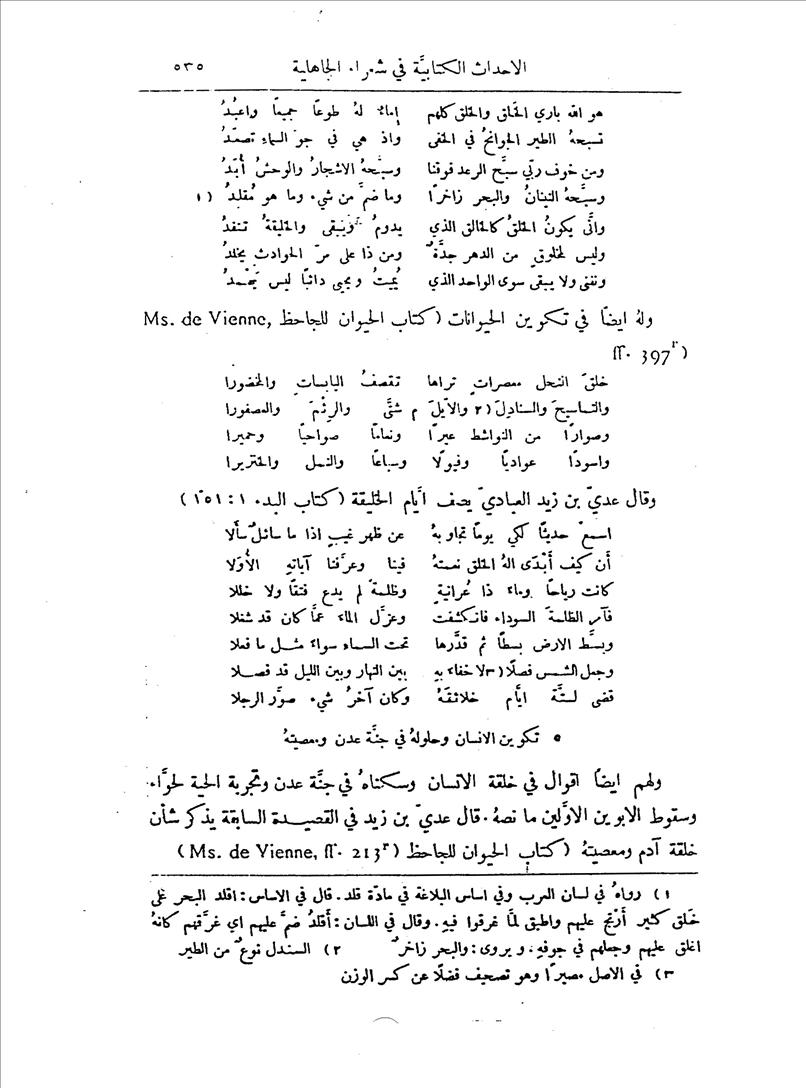 الاحداث الكتابيَّة في شعراء الجاهلية ٥٣٥
هو الله باري الخلق والخلق كلهم إماءٌ لهُ طوعًا جميعًا واعبُدُ
تسبحهُ الطير الجوانحُ في الخفى واذ هي في جو السماء تصعَّدُ
ومن خوف ربّي سبَّح الرعد فوقنا وسبَّحهُ الاشجارُ والوحشُ أُبَّدُ
وسبَّحهُ النينانُ والبحر زاخرًا وما ضمَّ من شيء وما هو مُقلدُ (١
وانَّى يكونُ الخلقُ كالخالق الذي يدومُ ويبقى والخليقةُ تنفدُ
وليس لمخلوقٍ من الدهر جدَّةٌ ومن ذا على مرّ الحوادث يخلدُ
ونفنى ولا يبقى سوى الواحد الذي يُميتُ ويحيي دائبًا ليس يَمْهدُ
ولهُ ايضًا في تكوين الحيوانات (كتاب الحيوان للجاحظ Ms. de Vienne,
ff. 397r)
خلقَ النحل معصراتٍ تراها تقصفُ اليابسات والخضورا
والتماسيحَ والسنادلَ (٢ والأيّلَ م شتَّى والرِئْمَ والعصفورا
وصوارًا من النواشط عيرًا ونعامًا صواحبًا وحميرا
واسودًا عواديًا وفيولًا وسباعًا والنمل والخنزيرا
وقال عديّ بن زيد العبادي يصف ايَّام الخليقة (كتاب البدء ١ : ١٥١)
اسمع حديثًا لكي يومًا تجاوبهُ عن ظهر غيبٍ اذا ما سائلٌ سألا
أن كيف أَبْدَى الهُ الخلق نعمتهُ فينا وعرَّفنا آياتهِ الأُوَلا
كانت رياحًا وماءً ذا عُرانيةٍ وظلمةً لم يدع فتقًا ولا خللا
فأمر الظلمةَ السوداء فانكشفت وعزَّل الماءَ عمَّا كان قد شغلا
وبسَّط الارض بسطًا ثم قدَّرها تحت السماء سواءً مثل ما فعلا
وجعل الشمس فصلًا (٣ لا خفاء بهِ بين النهار وبين الليل قد فصلا
قضى لستَّة ايَّام خلائقهُ وكان آخرُ شيء صوَّر الرجلا
٥ تكوين الانسان وحلولهُ في جنَّة عدن ومعصيتهُ
ولهم ايضًا اقوال في خلقة الانسان وسكناهُ في جنَّة عدن وتجربة الحية لحوَّاء
وسقوط الابوين الاوَّلين ما نصهُ. قال عديّ بن زيد في القصيدة السابقة يذكر شأن
خلقة آدم ومعصيتهُ (كتاب الحيوان للجاحظ (Ms. de Vienne, ff. 213r)
١) رواهُ في لسان العرب وفي اساس البلاغة في مادّة قلد. قال في الاساس: اقلد البحر على
خَلق كثير أرْتج عليهم واطبق لمَّا غرقوا فيهِ. وقال في اللسان: أقلدُ ضمَّ عليهم اي غرَّقهم كانهُ
اغلق عليهم وجعلهم في جوفهِ. ويروى: والبحر زاخرٌ ٢) السندل نوعٌ من الطير
٣) في الاصل مصيرًا وهو تصحيف فضلًا عن كسر الوزن